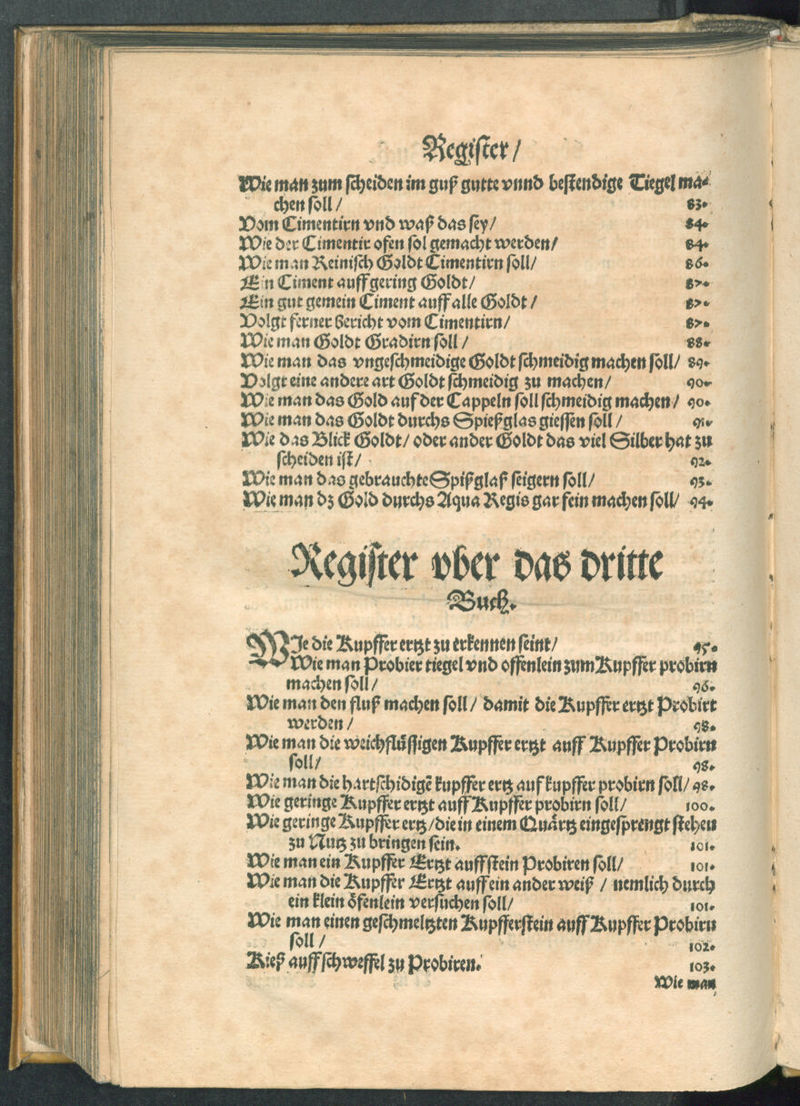 Register/
Wie man zum scheiden im guß gutte vnnd bestendige Tiegel ma-
chen soll/ 83.
Vom Cimentirn vnd waß das sey/ 84.
Wie der Cimentir ofen sol gemacht werden/ 84.
Wie man Reinisch Goldt Cimentirn soll/ 86.
Ein Ciment auff gering Goldt/ 87.
Ein gut gemein Ciment auff alle Goldt/ 87.
Volgt ferner bericht vom Cimentirn/ 87.
Wie man Goldt Gradirn soll/ 88.
Wie man das vngeschmeidige Goldt schmeidig machen soll/ 89.
Volgt eine andere art Goldt schmeidig zu machen/ 90.
Wie man das Gold auf der Cappeln soll schmeidig machen/ 90.
Wie man das Goldt durchs Spießglas giessen soll/ 91.
Wie das Blick Goldt/ oder ander Goldt das viel Silber hat zu
scheiden ist/ 92.
Wie man das gebrauchte Spißglaß seigern soll/ 93.
Wie man dz Gold durchs Aqua Regis gar fein machen soll/ 94.
Register vber das dritte
Buch.
WIe die Kupffer ertzt zu erkennen seint/ 95.
Wie man Probier tiegel vnd offenlein zum Kupffer probirn
machen soll/ 96.
Wie man den fluß machen soll/ damit die Kupffer ertzt Probirt
werden/ 98.
Wie man die weichflüssigen Kupffer ertzt auff Kupffer Probirn
soll/ 98.
Wie man die hartschidigē kupffer ertz auf kupffer probirn soll/ 98.
Wie geringe Kupffer ertzt auff Kupffer probirn soll/ 100.
Wie geringe Kupffer ertz/ die in einem Quärtz eingesprengt stehen
zu Nutz zu bringen sein. 101.
Wie man ein Kupffer Ertzt auff stein Probiren soll/ 101.
Wie man die Kupffer Ertzt auff ein ander weiß/ nemlich durch
ein klein öfenlein versuchen soll/ 101.
Wie man einen geschmeltzten Kupfferstein auff Kupffer Probirn
soll/ 102.
Kieß auff schweffel zu Probiren. 103.
Wie man